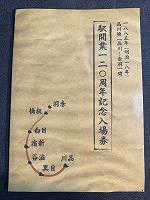 一八八五年(明治一八年)
品川線(品川~赤羽)開
駅開業一二〇周年記念入場券
赤羽
板橋
目白
新宿
渋谷
目黒
品川